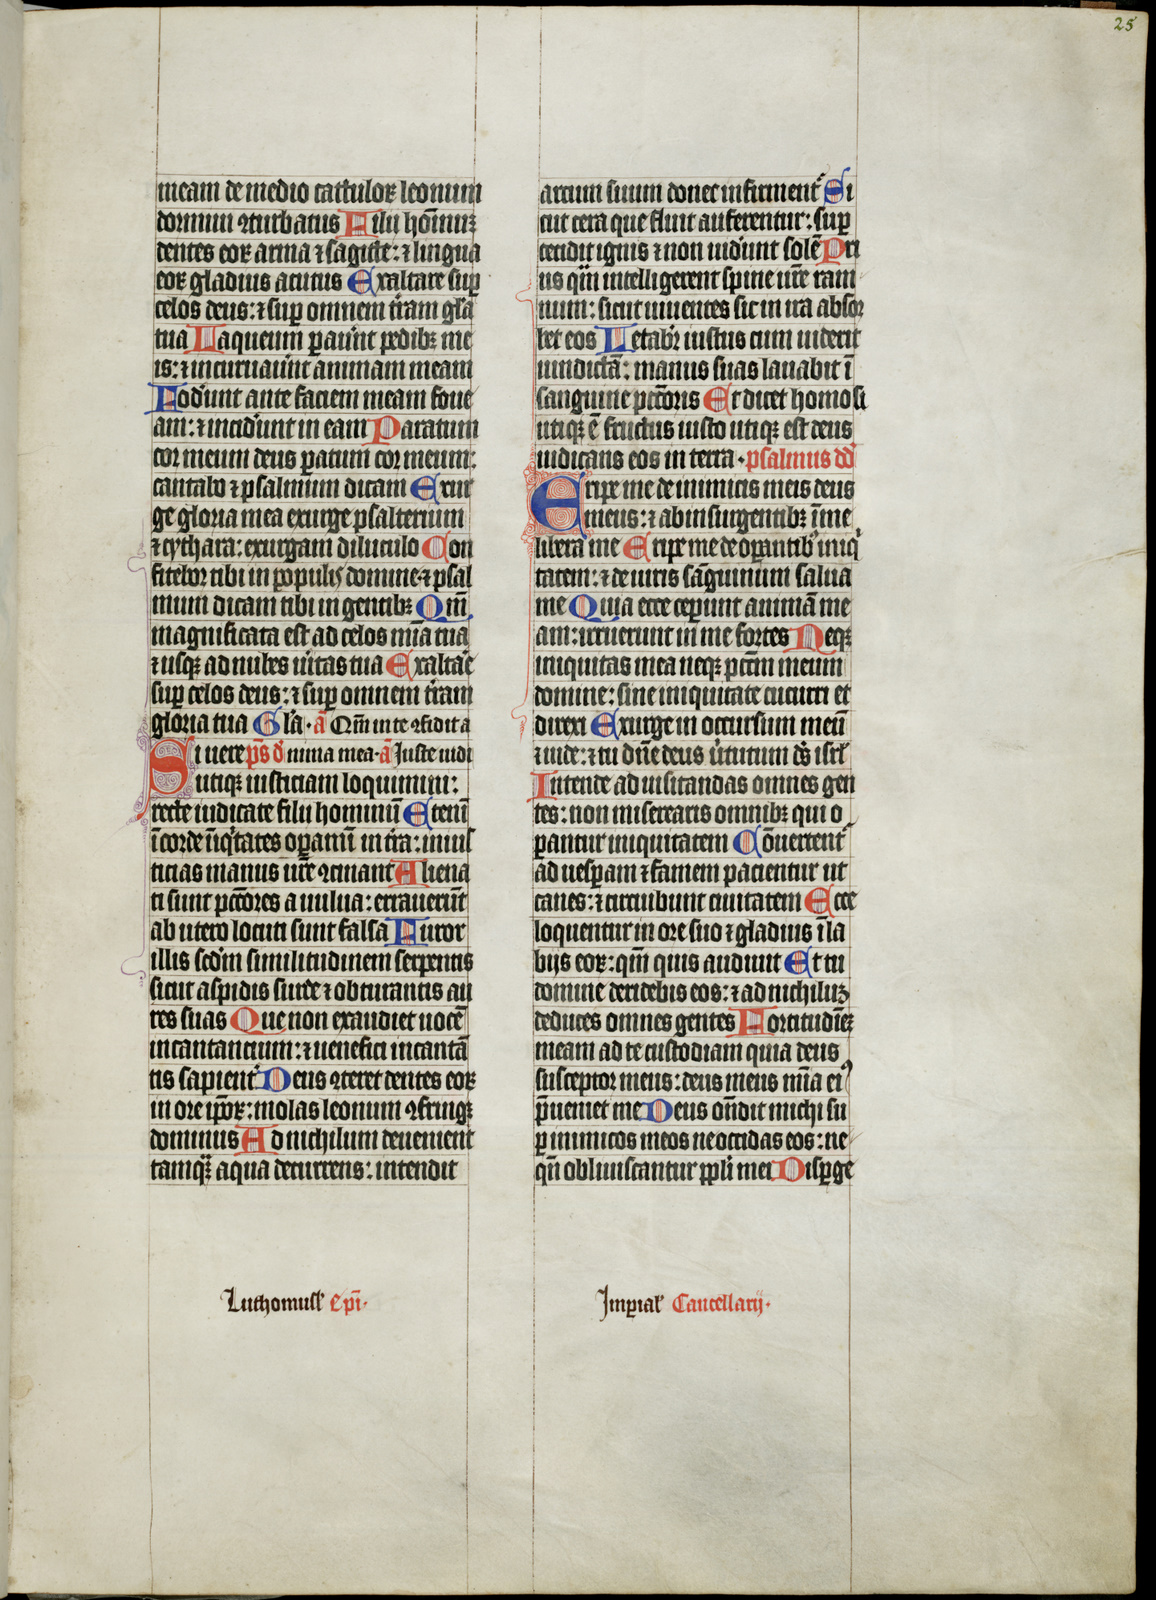 25
meam de medio catuloꝝ leonum
dormiui ꝯturbatus Filij hoīnuꝫ
dentes eoꝝ arma ⁊ sagitte: ⁊ lingua
eoꝝ gladius acutus Exaltare suꝑ
celos deus: ⁊ suꝑ omnem t̄ram gl̄a
tua Laqueum ꝑau̾unt pedibꝫ me
is: ⁊ incuruau̾unt animam meam
Fod̾unt ante faciem meam foue
am: ⁊ incid̾unt in eam Paratum
cor meum deus ꝑatum cor meum:
cantabo ⁊ psalmum dicam Exur
ge gloria mea exurge psalterium
⁊ cythara: exurgam diluculo Con
fitebor tibi in populis domine: ⁊ psal
mum dicam tibi in gentibꝫ Qm̄
magnificata est ad celos mīa tua
⁊ usqꝫ ad nubes u̾itas tua Exalta̾e
suꝑ celos deus: ⁊ suꝑ omnem t̄ram
gloria tua Gl̄a. a̅ Qm̄ in te ꝯfidit a
Si uere ps̄ d̄ nima mea. a̅ Juste iudi
utiqꝫ iusticiam loquimini:
recte iudicate filij hominū Etenī
ī corde īiq̾tates oꝑamī in t̄ra: inius
ticias manus ur̄e ꝯcinant Aliena
ti sunt pcc̄ores a uulua: errauer̄ūt
ab utero locuti sunt falsa Furor
illis scd̄m similitudinem serpentis
sicut aspidis surde ⁊ obturantis au
res suas Que non exaudiet uocē
incantancium: ⁊ uenefici incantā
tis sapient̾ Deus ꝯteret dentes eoꝝ
in ore ip̄oꝝ: molas leonum ꝯfringꝫ
dominus Ad nichilum deuenient
tamqꝫ aqua decurrens: intendit
arcum suum donec infirment̾ Si
cut cera que fluit auferentur: suꝑ
cendit ignis ⁊ non uid̾unt solē Pri
us qm̄ intelligerent spine ur̄e ram
num: sicut uiuentes sic in ira absor
bet eos Letabi̾ iustus cum uiderit
uindictā: manus suas lauabit ī
sanguine pcc̄oris Et dicet homo si
utiqꝫ ē fructus iusto utiqꝫ est deus
iudicans eos in terra. psalmus dd̄
Eripe me de inimicis meis deus
meus: ⁊ ab insurgentibꝫ ī me
libera me Eripe me de oꝑantibꝰ iniq̾
tatem: ⁊ de uiris sāguinum salua
me Quia ecce ceꝑunt animā me
am: irruerunt in me fortes Neqꝫ
iniquitas mea neqꝫ pcc̄m meum
domine: sine iniquitate cucurri et
direxi Exurge in occursum meū
⁊ uide: ⁊ tu dn̄e deus u̾tutum ds̄ isrl̄
Intende ad uisitandas omnes gen
tes: non miserearis omnibꝫ qui o
ꝑantur iniquitatem Cōuertent̾
ad uesꝑam ⁊ famem pacientur ut
canes: ⁊ circuibunt ciuitatem Ecce
loquentur in ore suo ⁊ gladius ī la
bijs eoꝝ: qm̄ quis audiuit Et tu
domine deridebis eos: ⁊ ad nichiluꝫ
deduces omnes gentes Fortitudīeꝫ
meam ad te custodiam quia deus
susceptor meus: deus meus mīa eiꝰ
p̄ueniet me Deus on̄dit michi su
ꝑ inimicos meos ne occidas eos: ne
qn̄ obliuiscantur ppl̄i mei Disꝑge
Luthomusl̄ Ep̄i.
Imꝑial̄ Cancellarij.